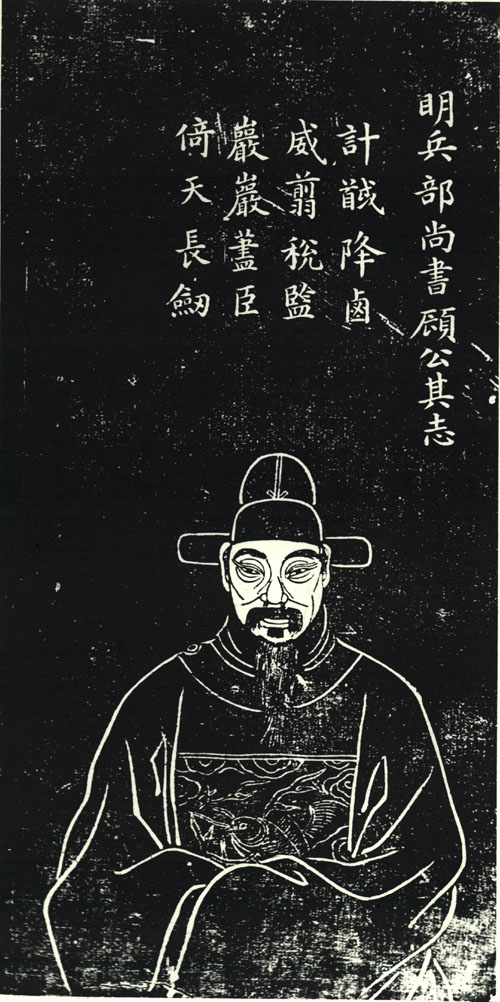 明兵部尚書頋公其志
計馘降鹵
威翦稅監
巖巖藎臣
倚天長劒